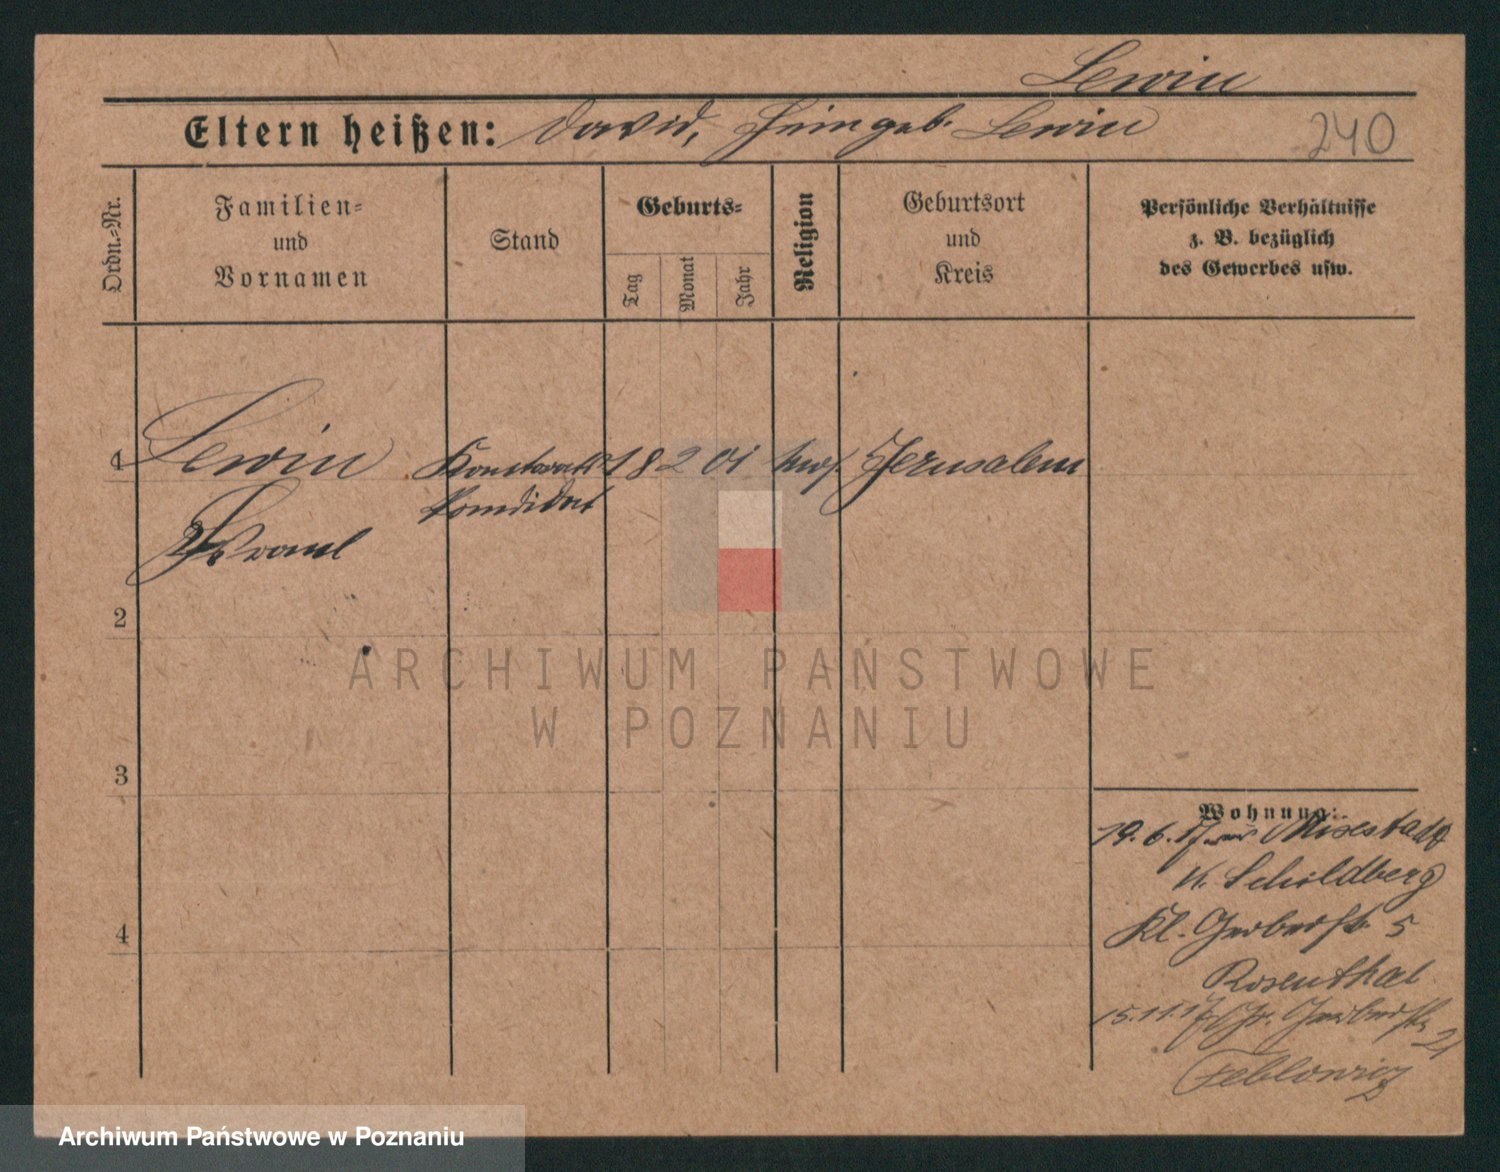 Lewin
Eltern heißen: David, geb. Lewin
240
Ordn.-Nr.
Familien-
und
Vornamen
Stand
Geburts-
Tag
Monat
Jahr
Religion
Geburtsort
und
Kreis
Persönliche Verhältnisse
z. B. bezüglich
des Gewerbes usw.
1 Lewin 18 2 01 Jerusalem
Kandidat
2
3
4
Wohnung:
19.6.17 Mixstadt
K. Schildberg
Kl. Gerberstr. 5
Rosenthal
15.11.17 Gr. Gerberstr. 21
ARCHIWUM PAŃSTWOWE
W POZNANIU
Archiwum Państwowe w Poznaniu